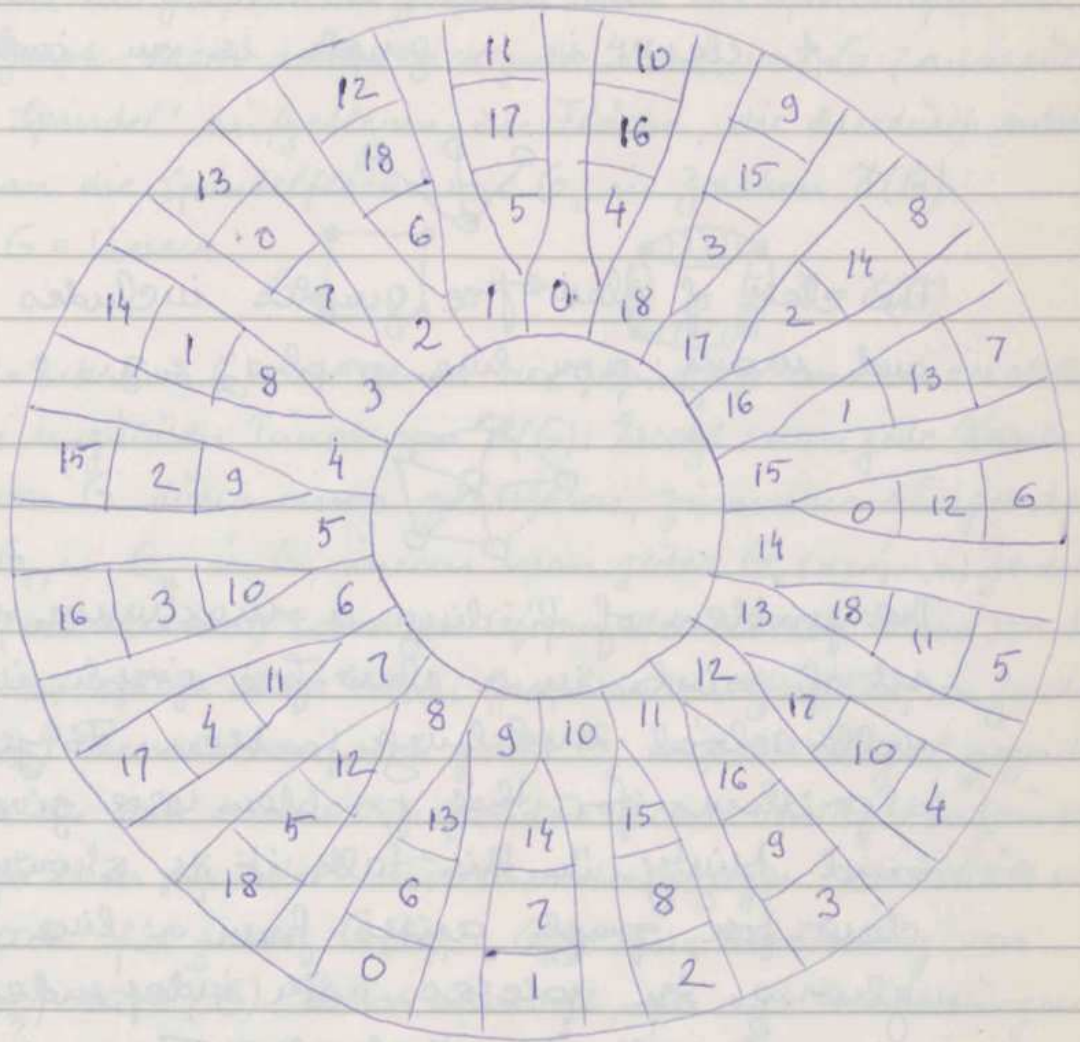 11 17 5
10 16 4
9 15 3
8 14 2
7 13 1
6 12 0
5 11 18
4 10 17
3 9 16
2 8 15
1 7 14
0 6 13
18 5 12
17 4 11
16 3 10
15 2 9
14 1 8
13 0 7
12 18 6
0 18 17 16 15 14 13 12 11 10 9 8 7 6 5 4 3 2 1